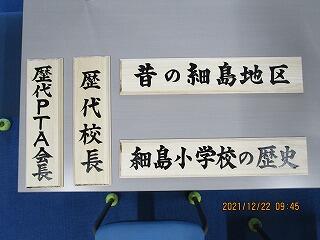 歴代PTA会長
歴代校長
昔の細島地区
細島小学校の歴史
2021/12/22 09:45